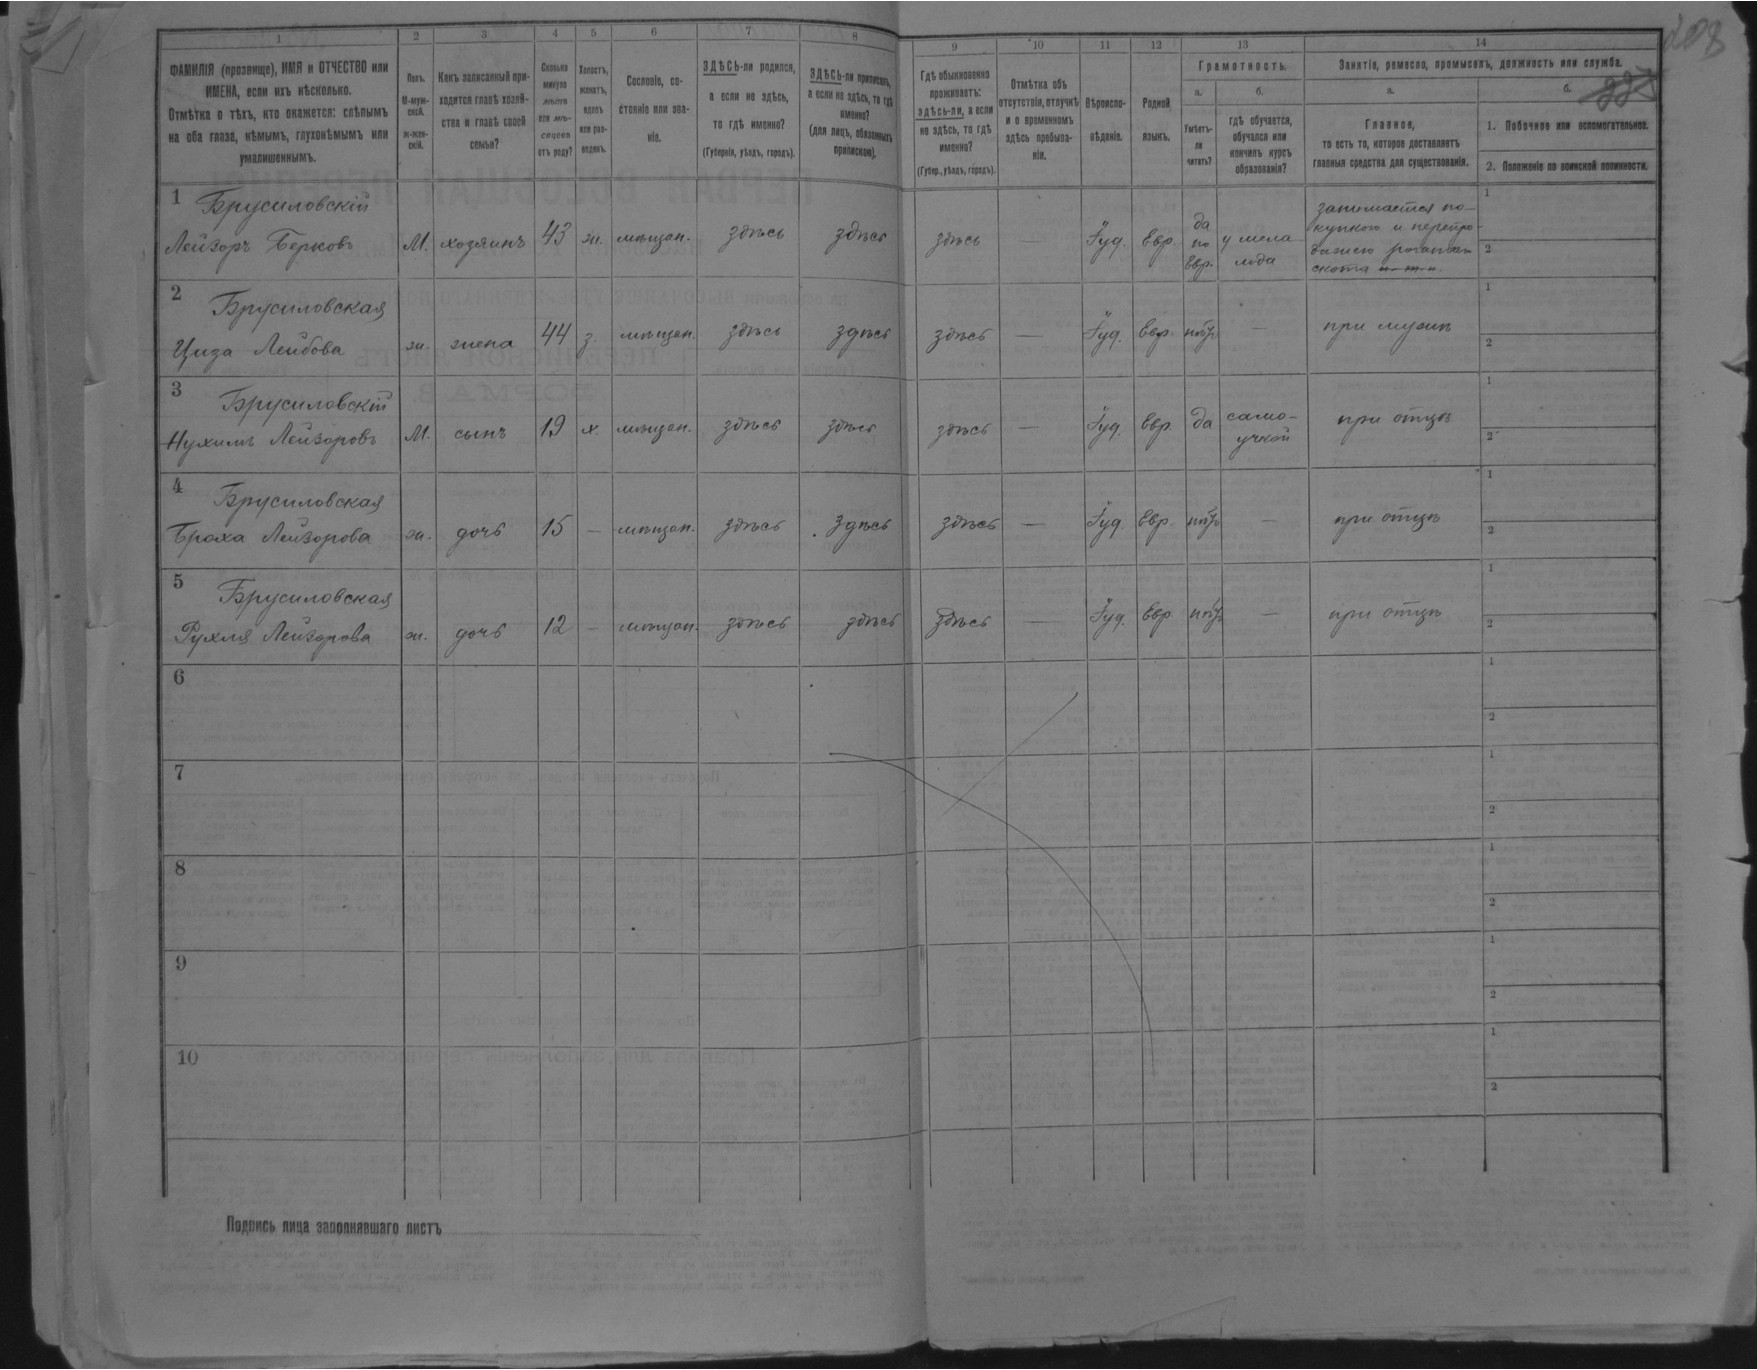 1 2 3 4 5 6 7 8 9 10 11 12 13 14
208
ФАМИЛІЯ (прозвище), ИМЯ и ОТЧЕСТВО или
ИМЕНА, если ихъ нѣсколько.
Отмѣтка о тѣхъ, кто окажется: слѣпымъ
на оба глаза, нѣмымъ, глухонѣмымъ или
умалишеннымъ.
Полъ.
М-муж-
ской.
ж-жен-
скій.
Какъ записанный при-
ходится главѣ хозяй-
ства и главѣ своей
семьи?
Сколько
минуло
лѣтъ
или мѣ-
сяцевъ
отъ роду?
Холостъ,
женатъ,
вдовъ
или раз-
веденъ.
Сословіе, со-
стояніе или зва-
ніе.
ЗДѢСЬ-ли родился,
а если не здѣсь,
то гдѣ именно?
(Губернія, уѣздъ, городъ).
ЗДѢСЬ-ли приписанъ,
а если не здѣсь, то гдѣ
именно?
(для лицъ, обязанныхъ
припискою).
Гдѣ обыкновенно
проживаетъ:
здѣсь-ли, а если
не здѣсь, то гдѣ
именно?
(Губер., уѣздъ, городъ).
Отмѣтка объ
отсутствіи, отлучкѣ
и о временномъ
здѣсь пребыва-
ніи.
Вѣроиспо-
вѣданіе.
Родной
языкъ.
Грамотность.
а.
Умѣетъ-
ли
читать?
б.
гдѣ обучается,
обучался или
кончилъ курсъ
образованія?
Занятіе, ремесло, промыселъ, должность или служба.
а.
Главное,
то есть то, которое доставляетъ
главныя средства для существованія.
б.
1. Побочное или вспомогательное.
2. Положеніе по воинской повинности.
1 Брусиловскій
Лейзоръ Берковъ М. хозяинъ 43 ж. мѣщан. здѣсь здѣсь здѣсь — Іуд. Евр. да по Евр. у мела мода занимается по-
купкою и перепро-
дажею рогатаго
скота
1
2
2 Брусиловская
Циза Лейбова ж. жена 44 з. мѣщан. здѣсь здѣсь здѣсь — Іуд. Евр. нѣтъ — при мужѣ
1
2
3 Брусиловскій
Нухимъ Лейзоровъ М. сынъ 19 х. мѣщан. здѣсь здѣсь здѣсь — Іуд. Евр. да само-
учкой при отцѣ
1
2
4 Брусиловская
Броха Лейзорова ж. дочь 15 — мѣщан. здѣсь здѣсь здѣсь — Іуд. Евр. нѣтъ — при отцѣ
1
2
5 Брусиловская
Рухля Лейзорова ж. дочь 12 — мѣщан. здѣсь здѣсь здѣсь — Іуд. Евр. нѣтъ — при отцѣ
1
2
6
1
2
7
1
2
8
1
2
9
1
2
10
1
2
Подпись лица заполнявшаго листъ